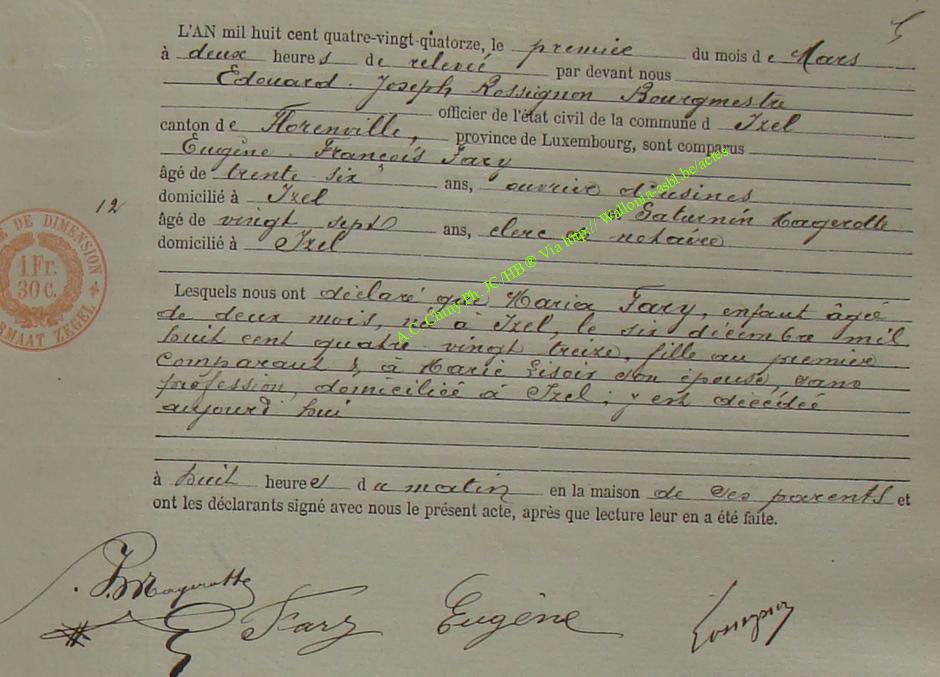 5
L'AN mil huit cent quatre-vingt-quatorze, le premier du mois de Mars
à deux heures de relevée par devant nous
Edouard Joseph Rossignon Bourgmestre
officier de l'état civil de la commune d Izel
canton de Florenville, province de Luxembourg, sont comparus
Eugène François Fary
âgé de trente six ans, ouvrier d'usines
domicilié à Izel Saturnin Magerotte
12
âgé de vingt sept ans, clerc de notaire
domicilié à Izel
E DE DIMENSION
1 Fr.
30 c.
RMAAT ZEGEL
Lesquels nous ont déclaré que Maria Fary, enfant âgé
de deux mois, né à Izel, le six décembre mil
huit cent quatre vingt treize, fille du premier
comparant &, à Marie Lisoir son épouse, sans
profession, domiciliée à Izel; y est décédée
aujourd'hui
à huit heures du matin en la maison de ses parents et
ont les déclarants signé avec nous le présent acte, après que lecture leur en a été faite.
Magerotte
Fary Eugène
A.C.Chiny Ph. JC/HB @ Via http:// Wallonia-asbl.be/actes